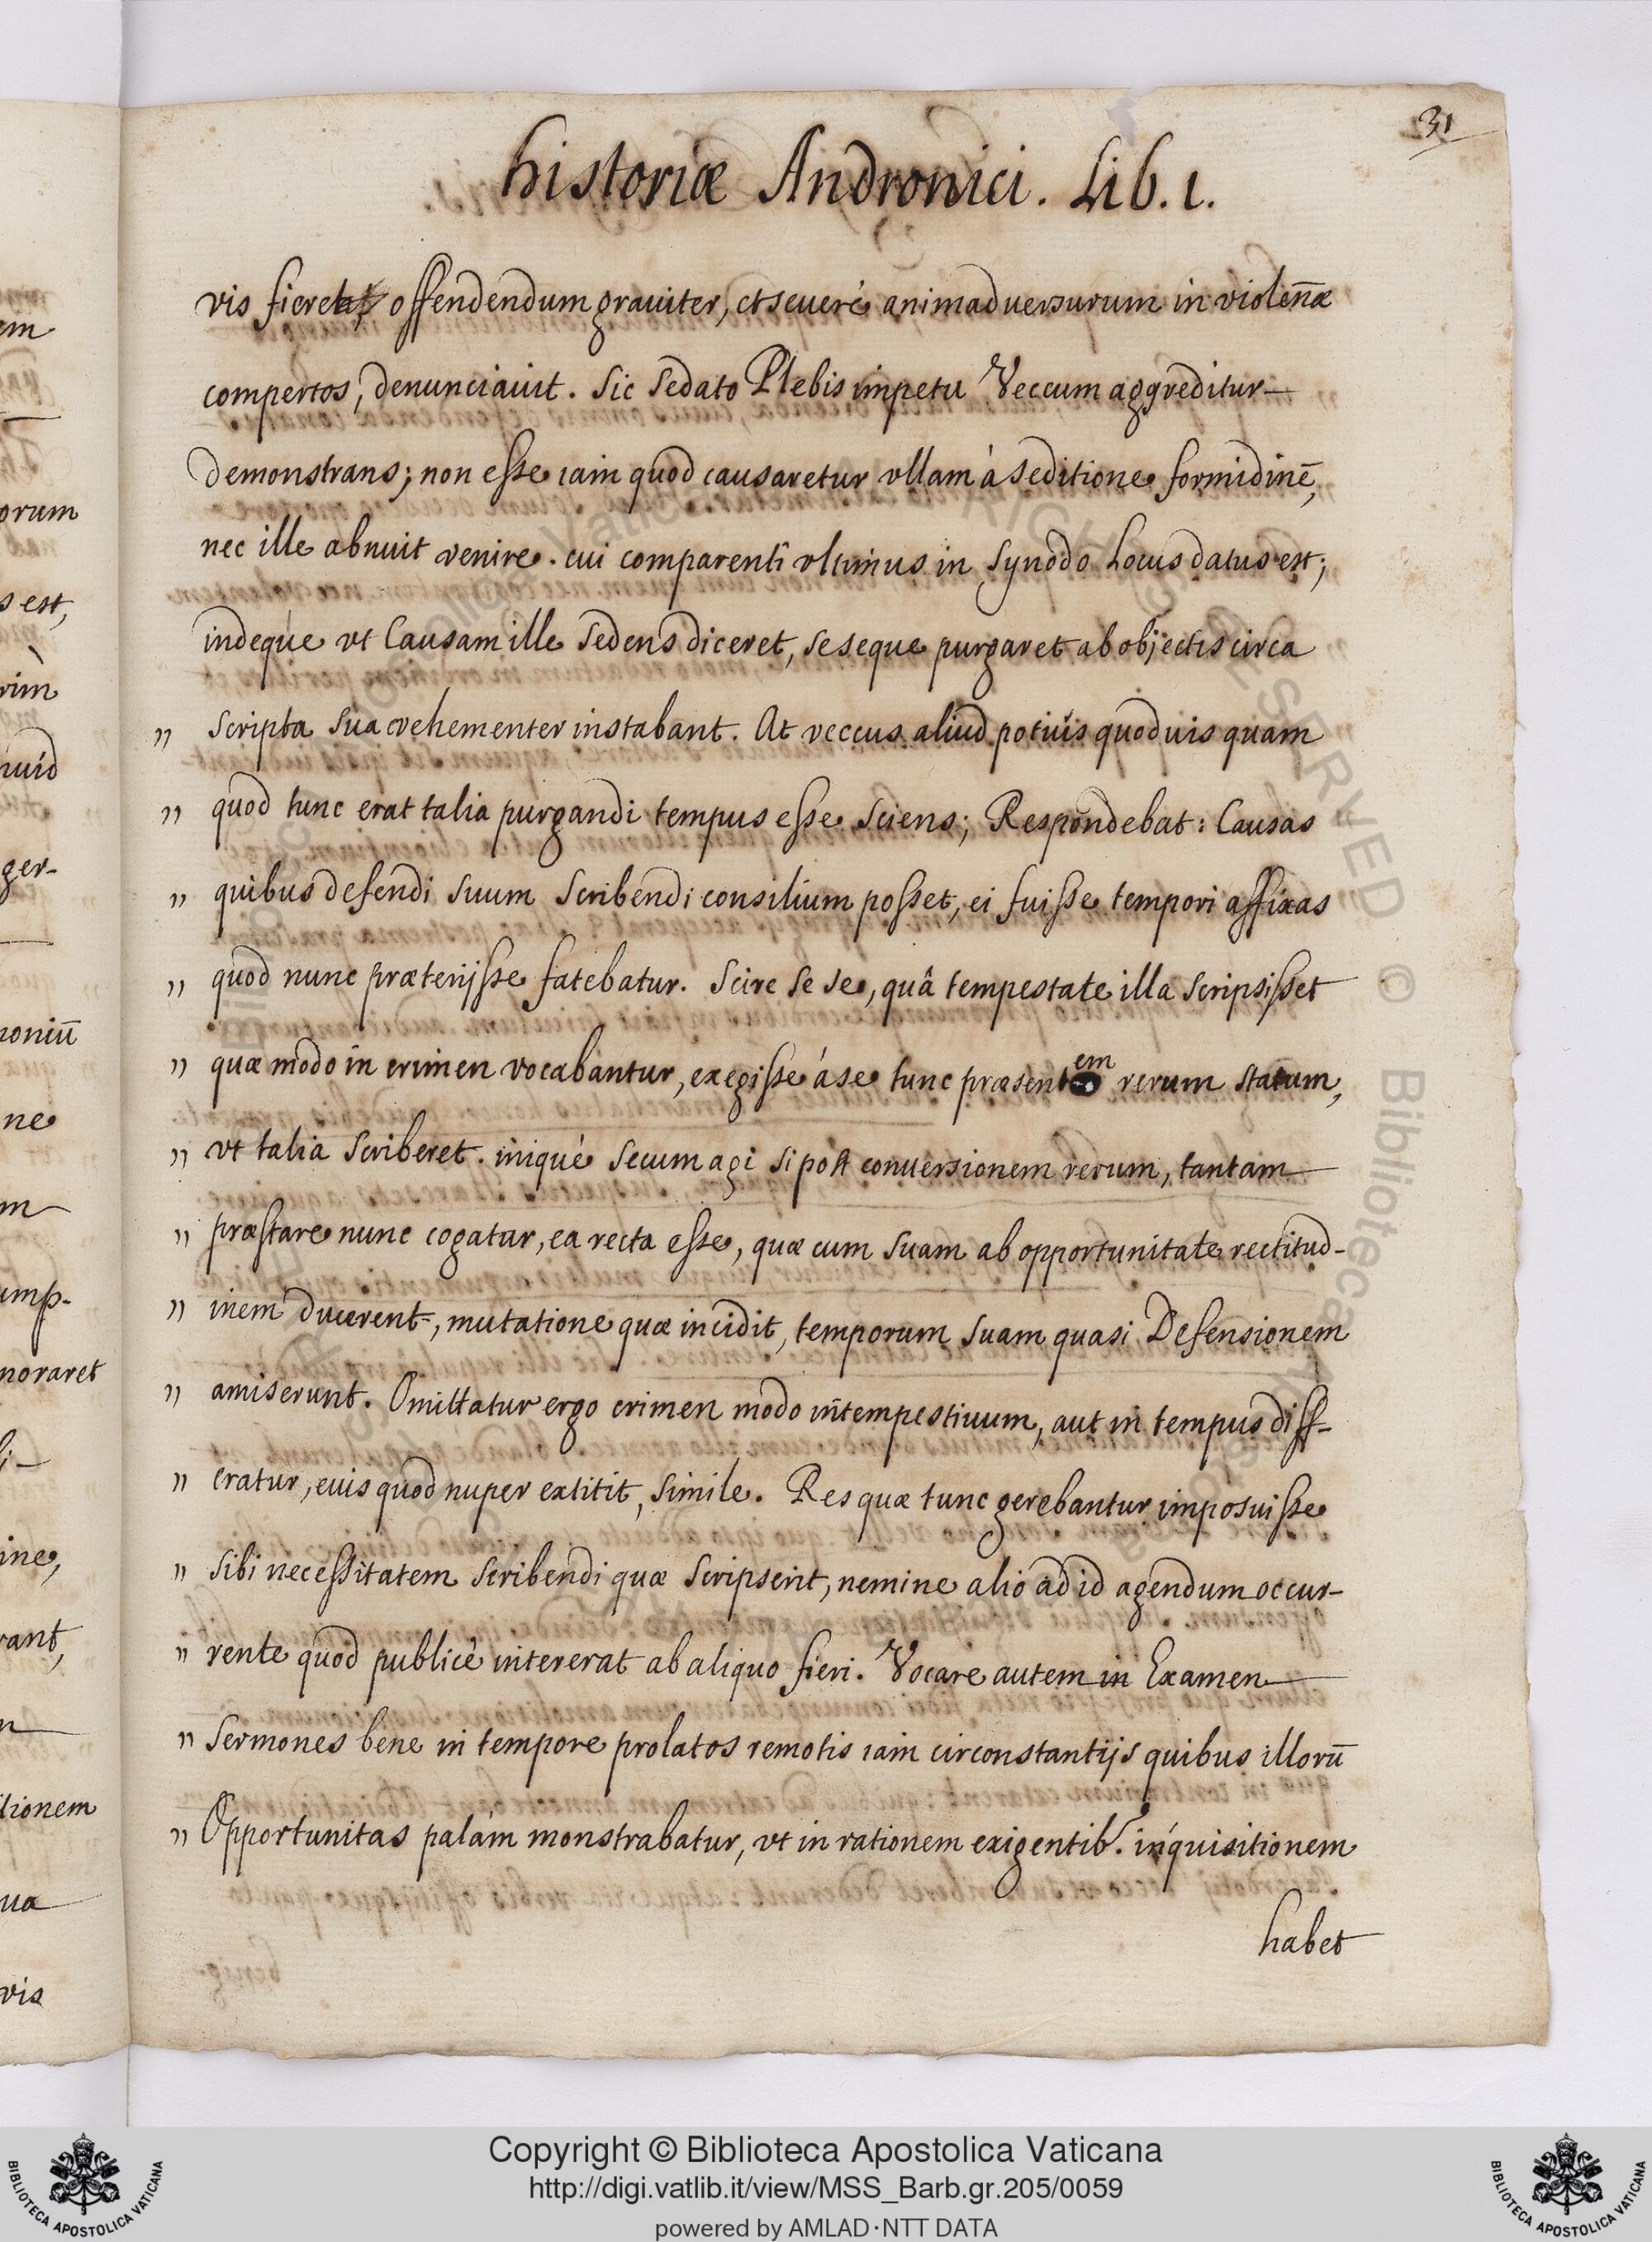 31
historiæ Andronici. Lib. 1.
vis fieret offendendum grauiter, et seuerè animaduersurum in violen̄æ
compertos, denunciauit. Sic Sedato Plebis impetu Veccum aggreditur
demonstrans; non esse iam quod causaretur vllam à Seditione formidinē,
nec ille abnuit venire. cui comparenti vltimus in Synodo Locus datus est;
indeque vt Causam ille Sedens diceret, seseque purgaret ab objectis circa
,, scripta Sua vehementer instabant. At veccus aliud potius quoduis quam
,, quod tunc erat talia purgandi tempus esse Sciens; Respondebat: Causas
,, quibus defendi Suum Scribendi consilium posset, ei fuisse tempori affixas
,, quod nunc præterijsse fatebatur. Scire se se, quâ tempestate illa Scripsisset
,, quæ modo in crimen vocabantur, exegisse á se tunc præsentem rerum statum,
,, vt talia Scriberet. iniquè Secum agi Si post conuersionem rerum, tantam
,, præstare nunc cogatur, ea recta esse, quæ cum Suam ab opportunitate rectitud-
,, inem ducerent, mutatione quæ incidit, temporum Suam quasi Defensionem
,, amiserunt. Omittatur ergo crimen modo intempestiuum, aut in tempus diff-
,, eratur, euis quod nuper extitit, Simile. Res quæ tunc gerebantur imposuisse
,, Sibi necessitatem Scribendi quæ Scripserit, nemine alio ad id agendum occur-
,, rente quod publicè intererat ab aliquo fieri. Vocare autem in Examen
,, Sermones bene in tempore prolatos remotis iam circonstantijs quibus illorū
,, Opportunitas palàm monstrabatur, vt in rationem exigentib. inquisitionem
habet
em
orum
s est,
rim
ger-
oniū
ne
m
ump-
noraret
ine,
rant,
n
tionem
ua
vis
Copyright © Biblioteca Apostolica Vaticana
http://digi.vatlib.it/view/MSS_Barb.gr.205/0059
powered by AMLAD·NTT DATA
BIBLIOTECA APOSTOLICA VATICANA
BIBLIOTECA APOSTOLICA VATICANA